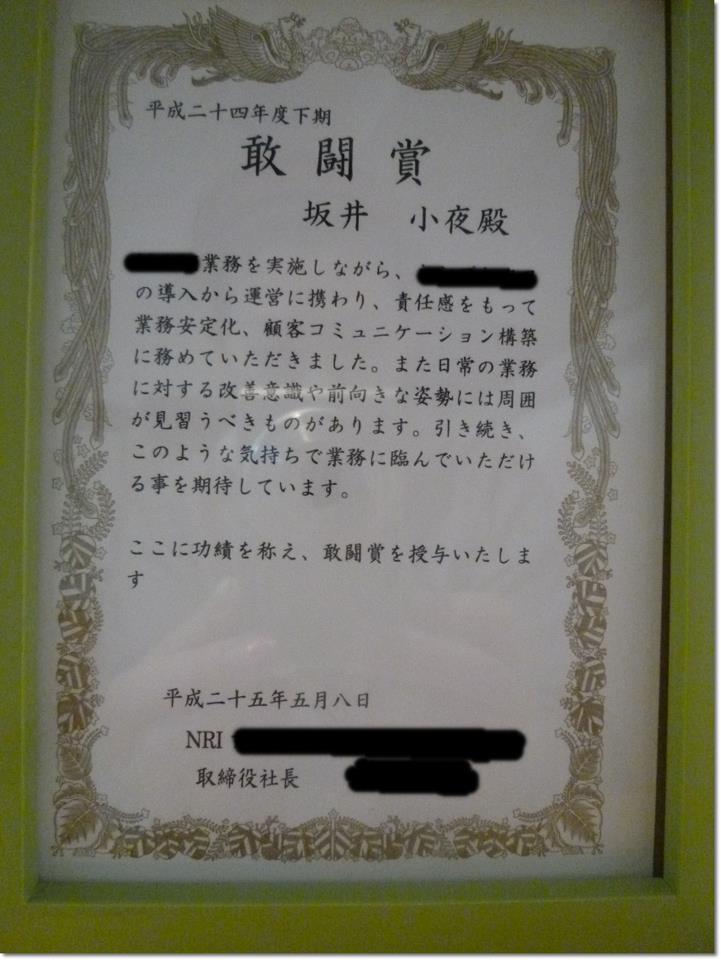 平成二十四年度下期
敢闘賞
坂井 小夜殿
業務を実施しながら、
の導入から運営に携わり、責任感をもって
業務安定化、顧客コミュニケーション構築
に務めていただきました。また日常の業務
に対する改善意識や前向きな姿勢には周囲
が見習うべきものがあります。引き続き、
このような気持ちで業務に臨んでいただけ
る事を期待しています。
ここに功績を称え、敢闘賞を授与いたしま
す
平成二十五年五月八日
NRI
取締役社長